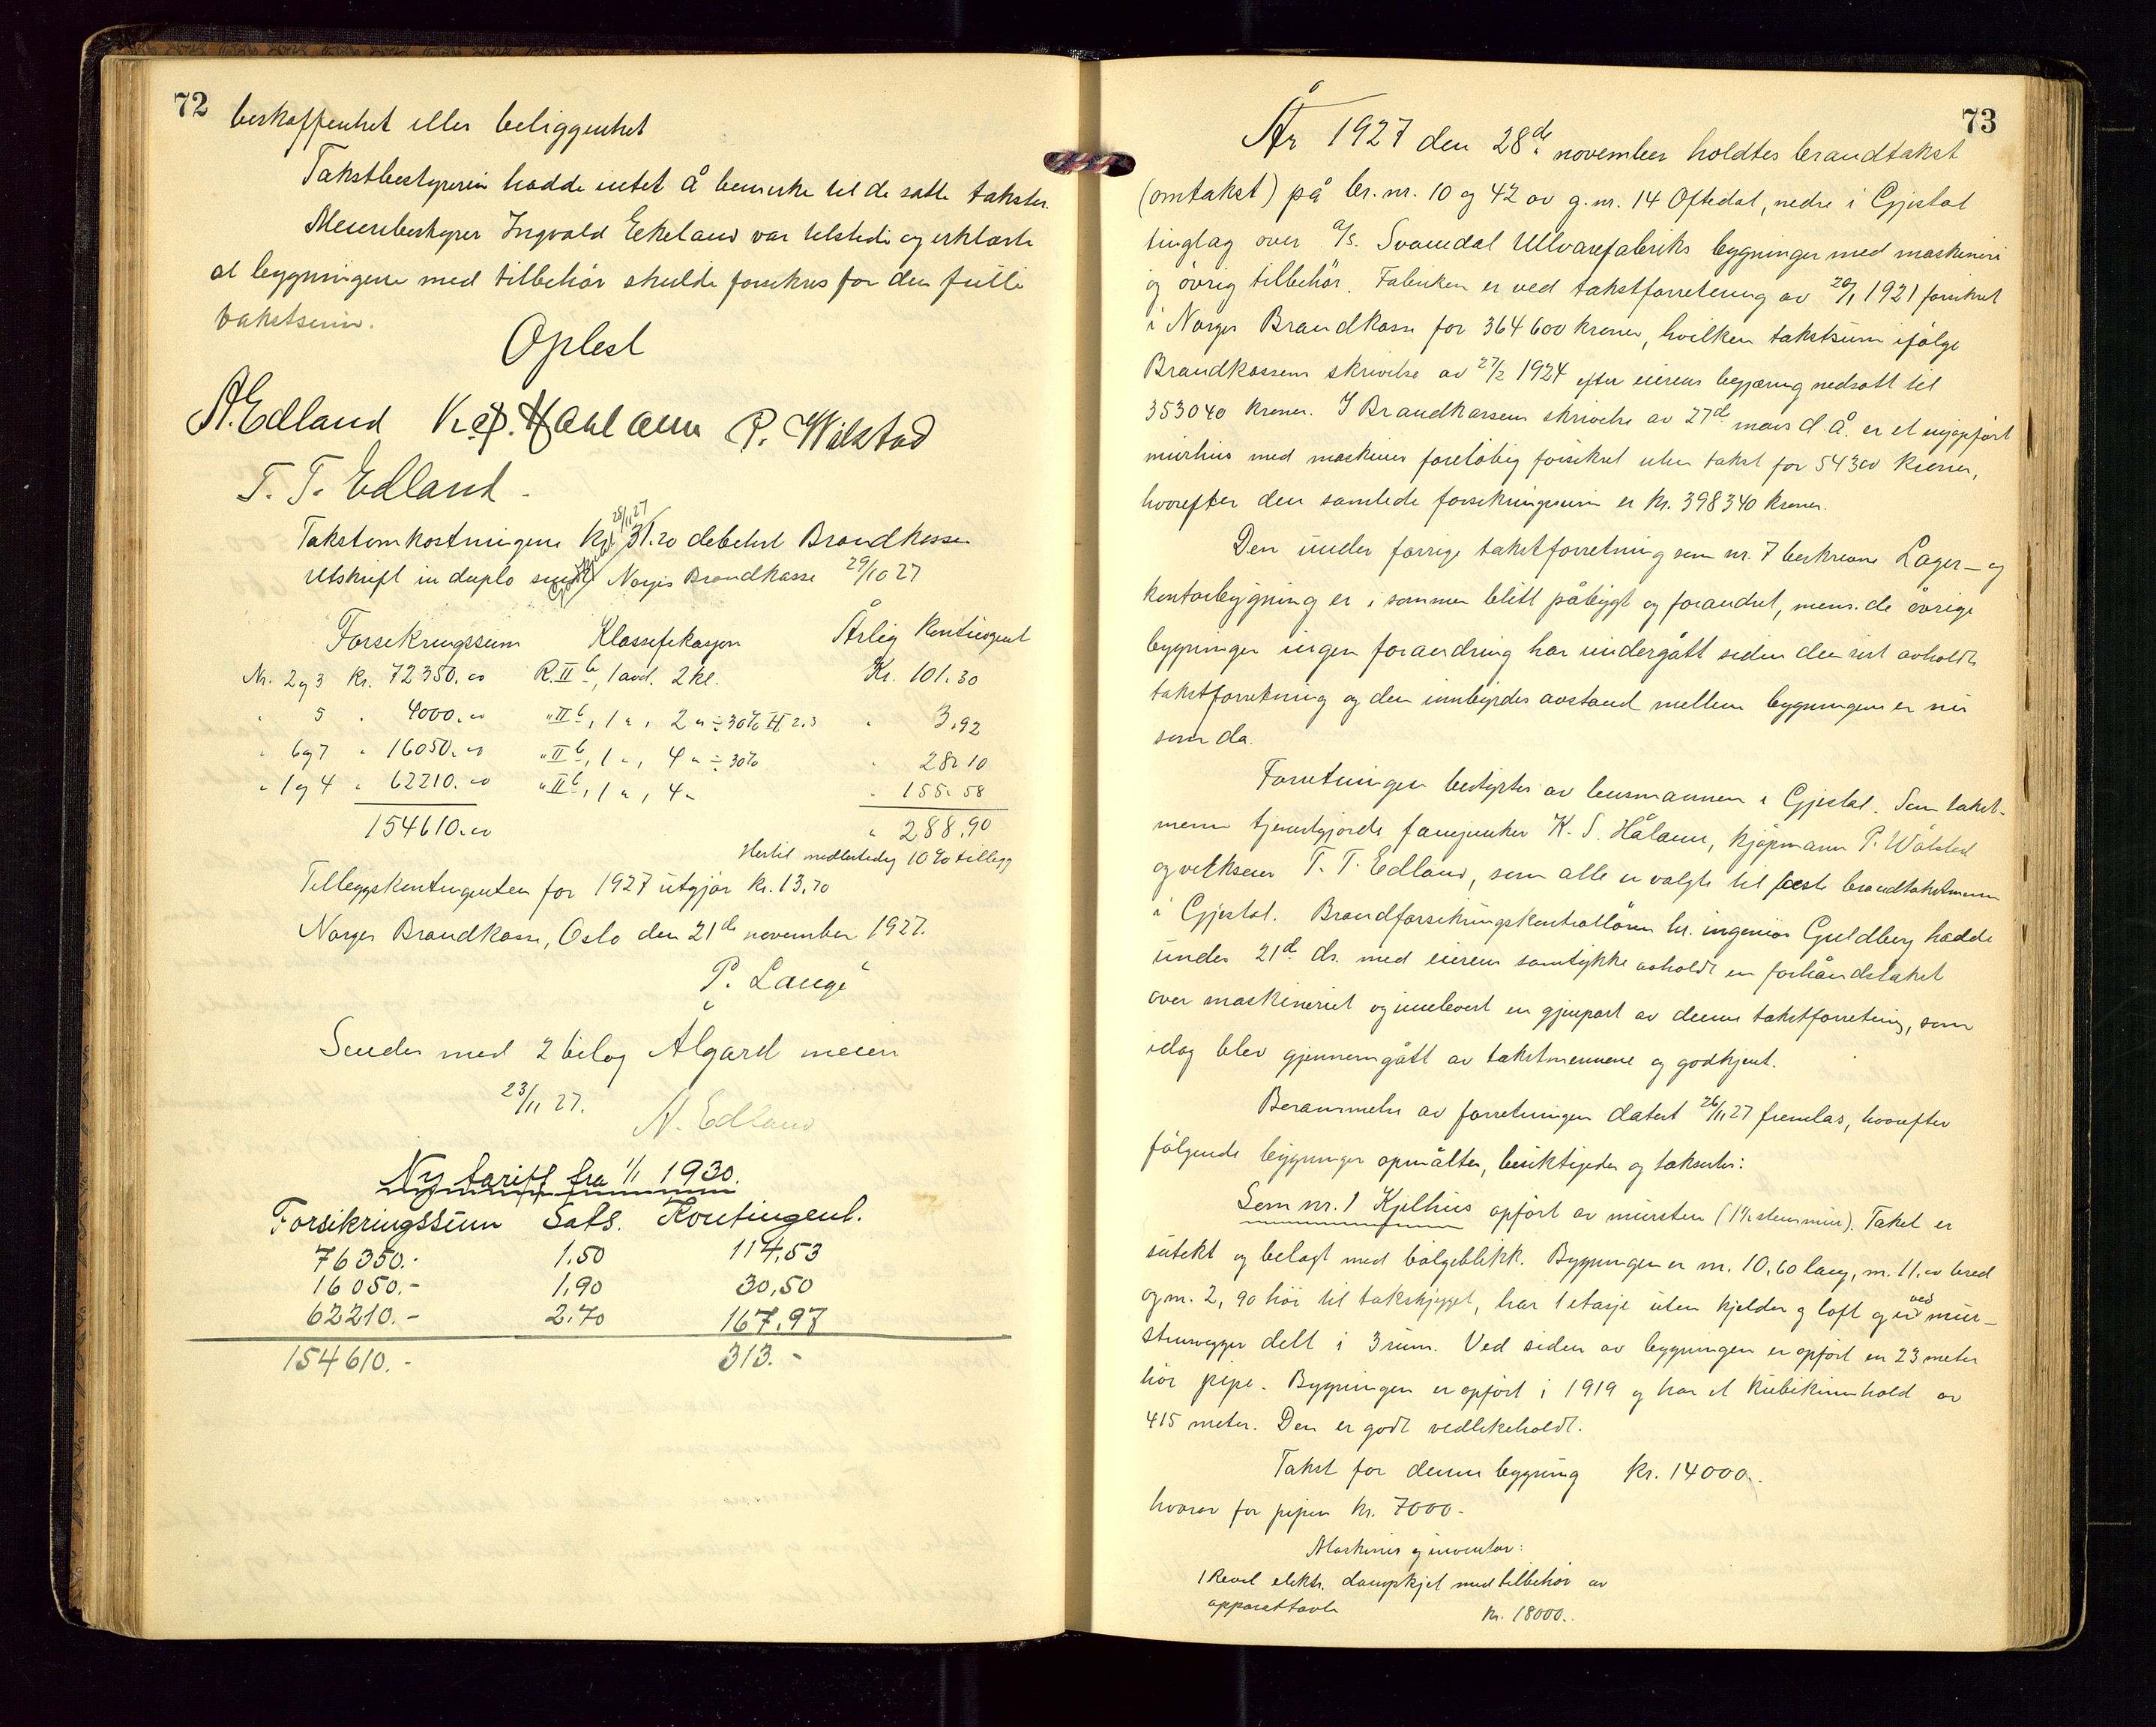 72
beskaffenhet eller beliggenhet
Takstbestyreren hadde intet å bemerke til de satte takster.
Meieribestyrer Ingvald Eikeland var tilstede og erklærte
at bygningene med tilbehör skulde forsikres for den fulle
takstsum.
Oplest
A. Edland K. S. Håland P. Wålstad
T. T. Edland.
28/11 27
Takstomkostningene kr. 31.20 debetert Brandkassen
Utskrift in duplo sendt Norges Brandkasse 29/10 27
Forsikringssum Klassifikasjon Årlig Kontingent
Nr. 2 og 3 Kr. 72350.00 R. II b, 1 avd. 2 kl. Kr. 101.30
" 5 " 4000.00 " II b, 1 ", 2 " ÷ 30% H 2.3 " 3.92
" 6 og 7 " 16050.00 " II b, 1 ", 4 " ÷ 30% " 28.10
" 1 og 4 " 62210.00 " II b, 1 ", 4 " " 155.58
154610.00 " 288.90
Hertil midlertidig 10% tillegg
Tilleggskontingenten for 1927 utgjör kr. 13.70
Norges Brandkasse, Oslo den 21de november 1927.
P. Lange
Sendes med 2 bilag Ålgård meieri
23/11 27. A. Edland
Ny tariff fra 1/1 1930.
Forsikringssum Sats. Kontingent.
76350.- 1.50 114,53
16050.- 1,90 30,50
62210.- 2.70 167,97
154610.- 313.-
73
År 1927 den 28de november holdtes brandtakst
(omtakst) på br. nr. 10 og 42 av g. nr. 14 Oftedal, nedre i Gjestal
tinglag over A/S. Svanedal Ullvarefabriks bygninger med maskineri
og övrig tilbehör. Fabriken er ved takstforretning av 20/1 1921 forsikret
i Norges Brandkasse for 364600 kroner, hvilken takstsum ifölge
Brandkassens skrivelse av 27/2 1924 efter eierens begjæring nedsatt til
353040 kroner. I Brandkassens skrivelse av 27de mars d. å. er et nyopfört
murhus med maskiner forelöbig forsikret uten takst for 54300 kroner,
hvorefter den samlede forsikringssum er kr. 398340 kroner.
Den under forrige takstforretning som nr. 7 beskrevne Lager- og
kontorbygning er i sommer blitt påbygt og forandret, mens de övrige
bygninger ingen forandring har undergått siden den sist avholdte
takstforretning og den innbyrdes avstand mellem bygningene er nu
som da.
Forretningen bestyrtes av lensmannen i Gjestal. Som takst-
menn tjenestgjorde fanejunker K. S. Håland, kjöpmann P. Wålstad
og verkseier T. T. Edland, som alle er valgte til faste brandtakstmenn
i Gjestal. Brandforsikringskontrollören hr. ingeniör Guldberg hadde
under 21de ds. med eierens samtykke avholdt en forhåndstakst
over maskineriet og innlevert en gjenpart av denne takstforretning, som
idag blev gjennemgått av takstmennene og godkjent.
Berammelse av forretningen datert 26/11 27 fremlas, hvorefter
fölgende bygninger opmåltes, besiktigedes og taksertes:
Som nr. 1 Kjelhus opfört av mursten (1½ stens mur). Taket er
sutekt og belagt med bölgeblikk. Bygningen er m. 10,60 lang, m. 11,00 bred
og m. 2,90 höi til takskjegget, har 1 etasje uten kjelder og loft og er ved mur-
stensvegger delt i 3 rum. Ved siden av bygningen er opfört en 23 meter
höi pipe. Bygningen er opfört i 1919 og har et kubikinnhold av
415 meter. Den er godt vedlikeholdt.
Takst for denne bygning kr. 14000.-
hvorav for pipen kr. 7000.-
Maskiner og inventar:
1 Revel elektr. dampkjel med tilbehör av
apparattavle kr. 18000.-